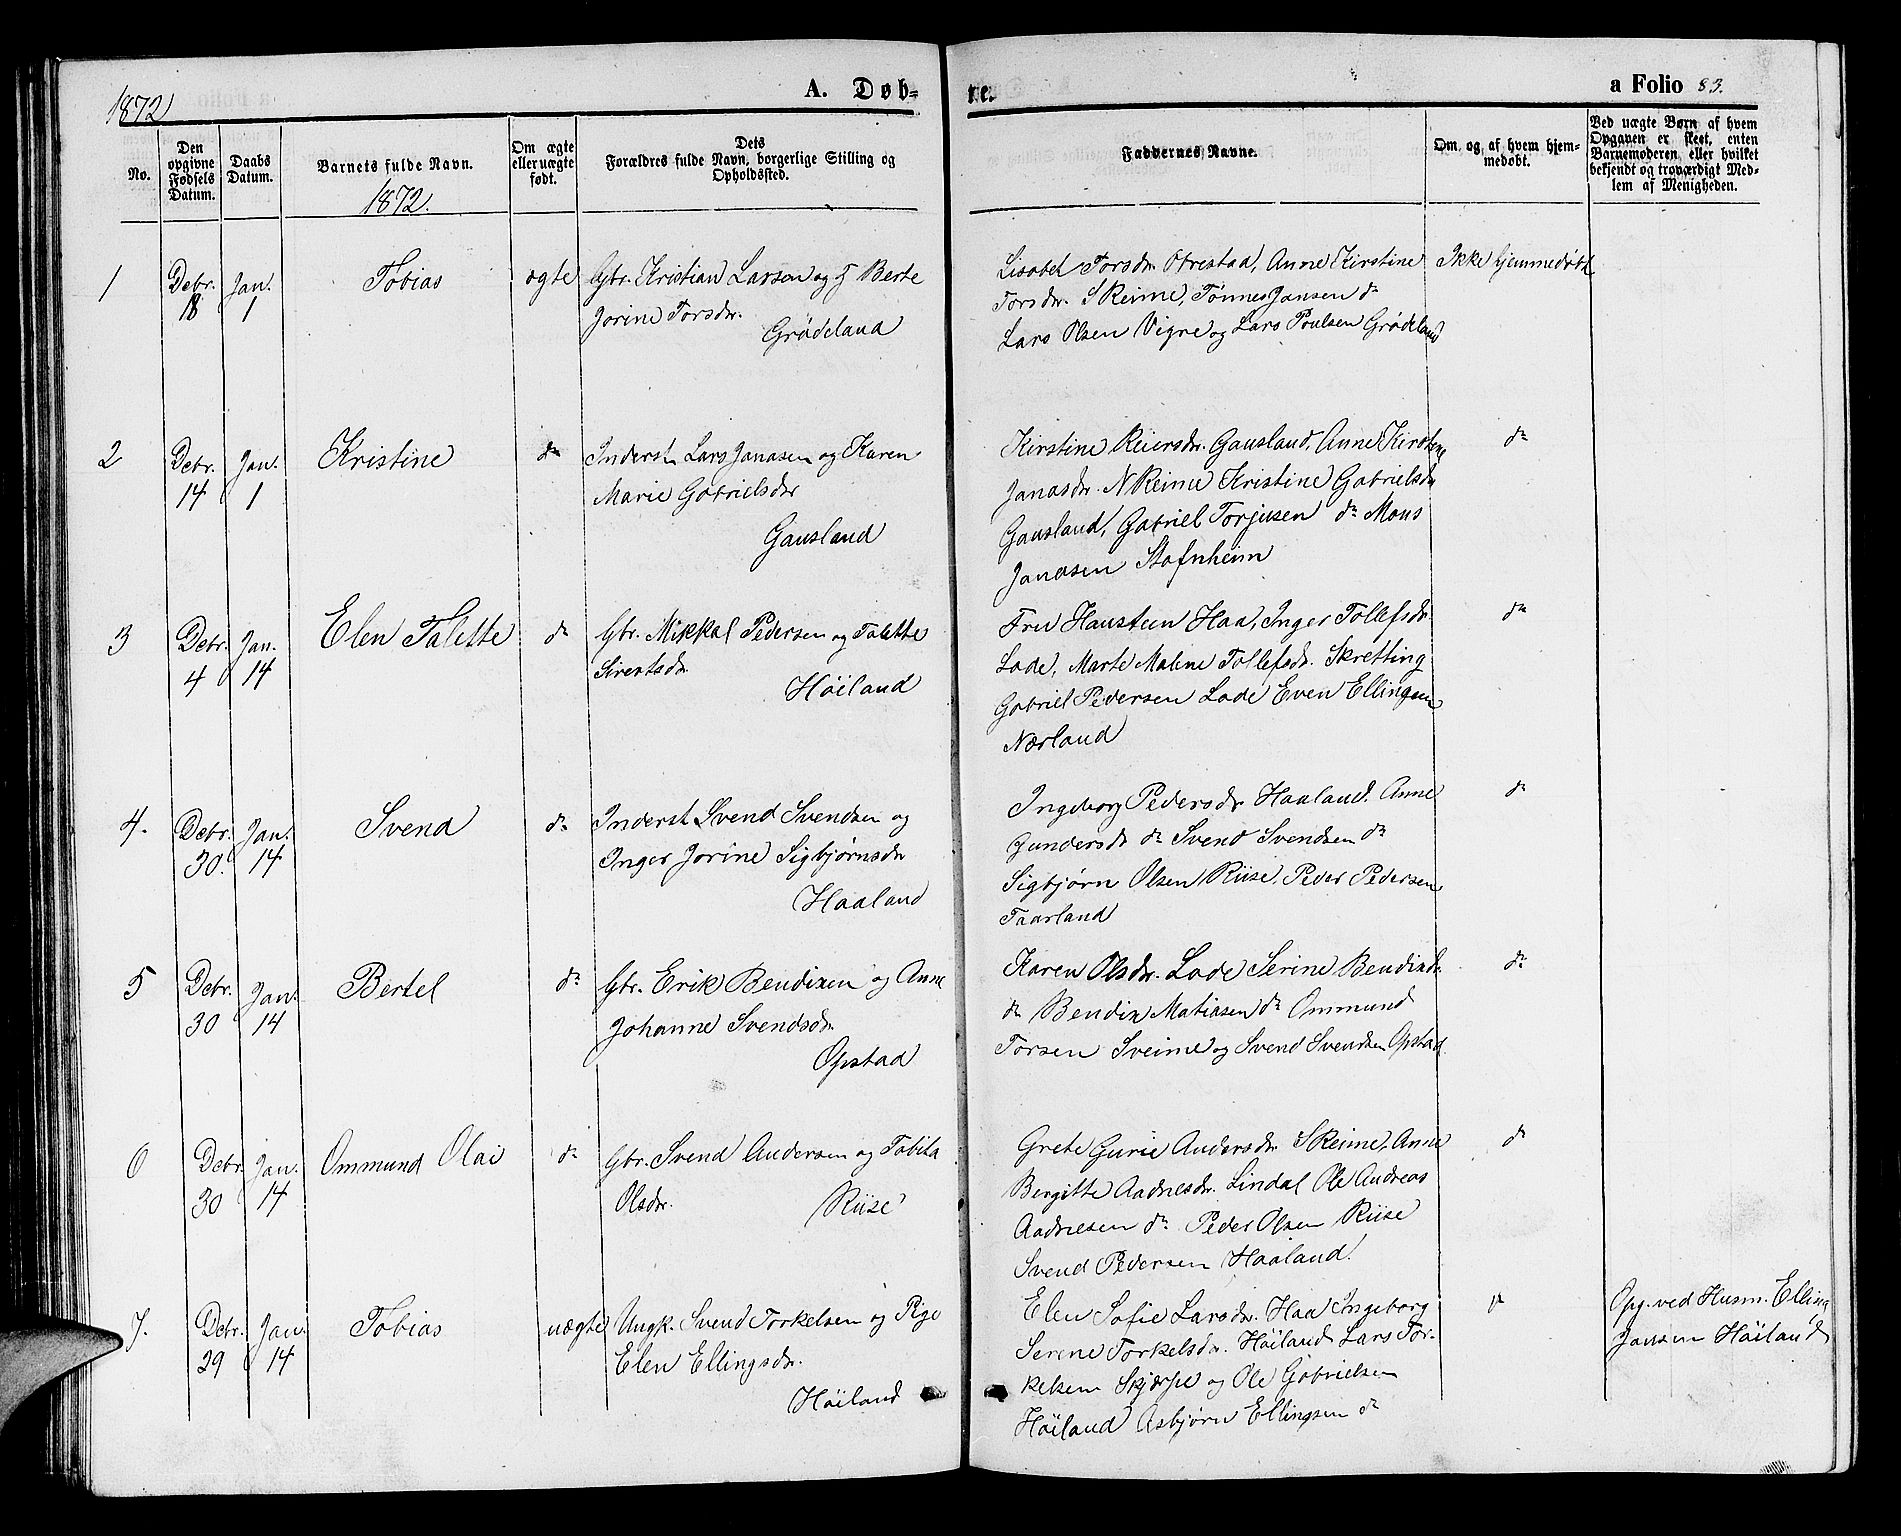 1872
A. Døb-
te.
a Folio 83.
No.
Den opgivne Fødsels Datum.
Daabs Datum.
Barnets fulde Navn.
1872.
Om ægte eller uægte født.
Dets Forældres fulde Navn, borgerlige Stilling og Opholdssted.
Faddernes Navne.
Om og af hvem hjemmedøbt.
Ved uægte Børn af hvem Opgaven er skeet, enten Barnemoderen eller hvilket bekjendt og troværdigt Medlem af Menigheden.
1
Debr. 18
Jan. 1
Tobias
ægte
Gbr. Kristian Larsen og H Berte
Jorine Torsdr.
Grødeland
Lisabet Torsdr. Obrestad, Anne Kirstine
Torsdr. S Reime, Tønnes Jansen do
Lars Olsen Vigre og Lars Poulsen Grødeland
Ikke hjemmedøbt
2
Debr. 14
Jan. 1
Kristine
do
Inderst Lars Janasen og Karen
Marie Gabrielsdr
Gausland
Kirstine Reiersdr. Gausland, Anne Kirstine
Janasdr. N Reime Kristine Gabrielsdr
Gausland, Gabriel Torjusen do Mons
Janasen Stafnheim
do
3
Debr. 4
Jan. 14
Elen Talette
do
Gbr. Mikkal Pedersen og Talette
Sivertsdr.
Høiland
Fru Hansteen Haa, Inger Tollefsdr.
Lode, Marte Maline Tollefsdr. Skretting
Gabriel Pedersen Lode Even Ellingsen
Nærland
do
4.
Debr. 30.
Jan. 14
Svend
do
Inderst Svend Svendsen og
Inger Jorine Sigbjørnsdr
Haaland
Ingeborg Pedersdr. Haaland. Anne
Gundersdr do Svend Svendsen do
Sigbjørn Olsen Riise, Peder Pedersen
Taarland
do
5
Debr. 30
Jan. 14
Bertel
do
Gbr. Erik Bendixen og Anne
Johanne Svendsdr.
Opstad
Karen Olsdr. Lode Serine Bendixdr.
do Bendix Matiasen do Ommund
Torsen Sreime og Svend Svendsen Opstad
do
6
Debr. 30
Jan. 14
Ommund Olai
do
Gbr. Svend Andersen og Tobita
Olsdr.
Riise
Grete Gurie Andersdr. S Reime, Anne
Bergitte Aadnesdr. Lindal Ole Andreas
Aadnesen do Peder Olsen Riise
Svend Pedersen Haaland.
do
7.
Debr. 29
Jan. 14
Tobias
uægte
Ungk. Svend Torkelsen og Pige
Elen Ellingsdr.
Høiland
Elen Sofie Larsdr. Haa Ingeborg
Serene Torkelsdr. Høiland Lars Tor-
kelsen Skjærpe og Ole Gabrielsen
Høiland Asbjørn Ellingsen do
do
Opg. ved Husm. Elling
Jansen Høiland